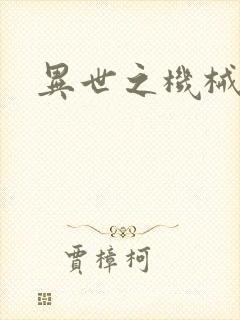 異世之機械
賈樟柯